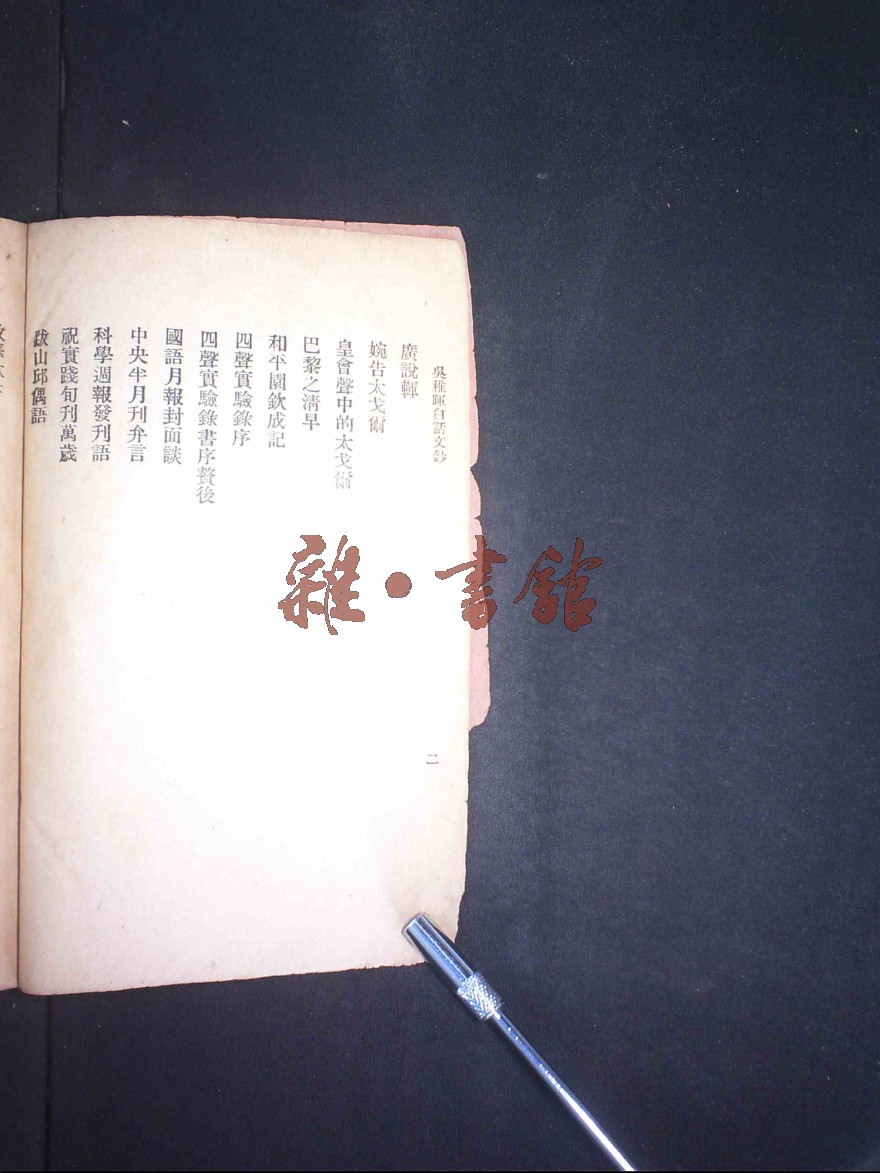 吳稚暉白話文鈔
廣說輝
婉告太戈爾
皇會聲中的太戈爾
巴黎之清早
和平園欽成記
四聲實驗錄序
四聲實驗錄書序贅後
國語月報封面談
中央半月刊弁言
科學週報發刊語
祝實踐旬刊萬歲
跋山邱偶語
二
雜·書館